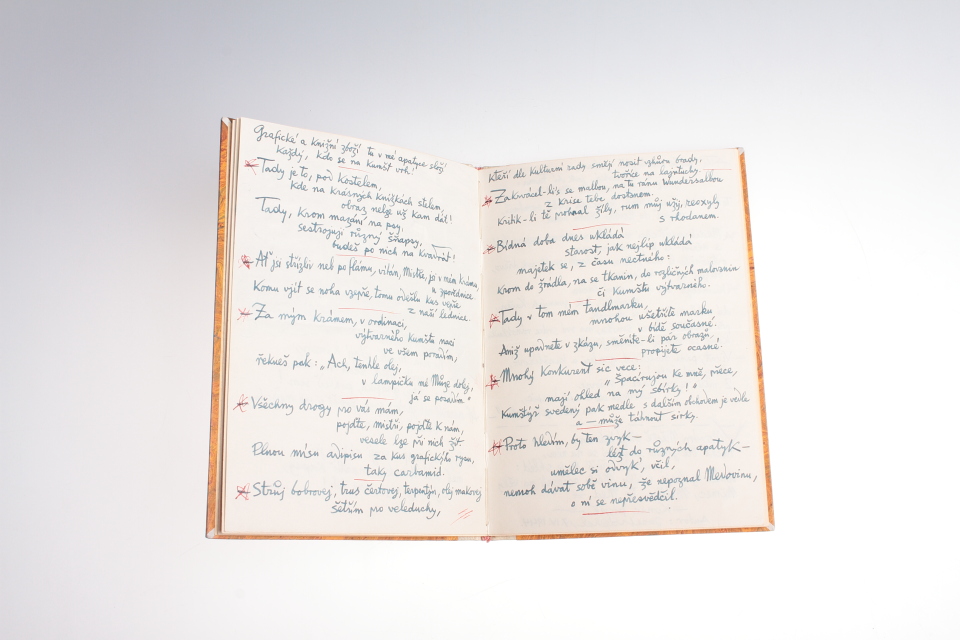 Grafické a knižní zboží tu v mé apatyce složí
každý, kdo se na kumšt vrhl
Tady je to, pod kostelem,
kde na krásných knížkách stelem,
obraz nelze už kam dát!
Tady, krom mazání na psy,
sestrojuji různý šňapsy,
budeš po nich na kravrát!
Ať jsi střízliv neb po flámu, vítán, Mistře, jsi v mém krámu,
Komu výjít se noha vzepře, tomu odešlu kus vepře
z naší lednice.
Za mým krámem, v ordinaci,
výtvarného kumštu naci
ve všem poradím,
řekneš pak: „Ach, tenhle olej,
v lampičku mé Múze dolej,
já se poradím"
Všechny drogy pro vás mám,
pojďte, mistři, pojďte k nám,
vesele lze při nich žít
Plnou mísu adipisu za kus grafickýho rysu,
taky carbamid.
Strůj bobrovej, trus čertovej, terpentýn, olej makovej
šetřím pro veleduchy,
kteří dle kulturní rady smějí nosit vzhůru brady,
tvořice na kajntuchy.
Zakvácal-li's se malbou, na tu ránu wundersalbou
z krise tebe dostanem.
Kritik-li tě prohnal žíly, rum můj užij, reoxyly
s rhodanem.
Bídná doba dnes ukládá
starost, jak nejlíp ukládá
majetek se, z času nectného:
Krom do žrádla, na se tkanin, do rozličných malovanin
či kumštu výtvarného.
Tady v tom mém tandlmarku,
mnohou ušetříte marku
v bídě současné.
Aniž upadnete v zkázu, směníte-li pár obrazů,
propijete ocasné.
Mnohý konkurent sic vece:
„Špacírujou ke mně, přece,
mají ohled na mý sbírky!"
Kumštýř svedený pak medle s dalším obchodem je vedle
a — může táhnout sirky.
Proto hledím, by ten zvyk —
lézt do různých apatyk —
umělec si odvyk', včil,
nemoh dávat sobě vinu, že nepoznal Medovinu,
o ní se nepřesvědčil.